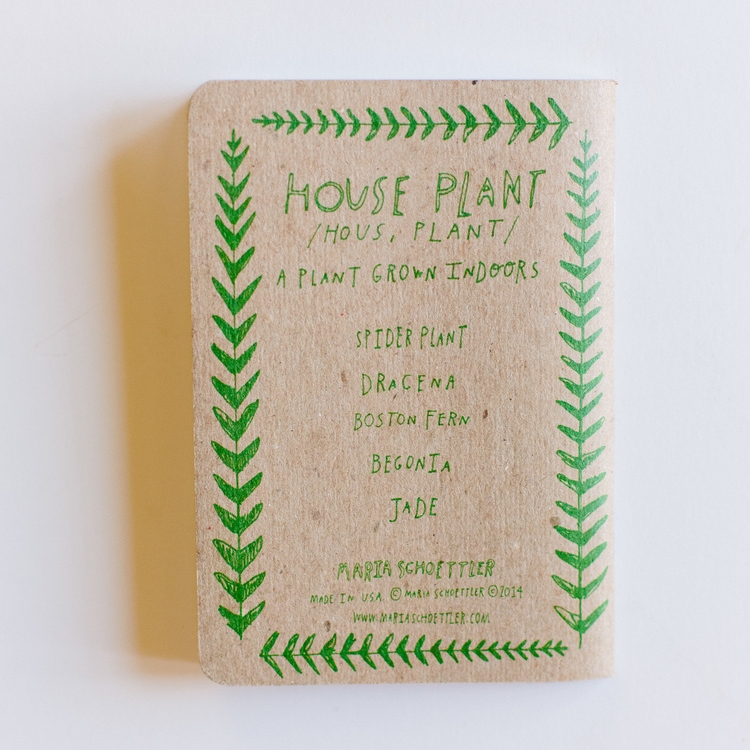 HOUSE PLANT
/HOUS, PLANT/
A PLANT GROWN INDOORS
SPIDER PLANT
DRACENA
BOSTON FERN
BEGONIA
JADE
MARIA SCHOETTLER
MADE IN USA © MARIA SCHOETTLER ©2014
WWW.MARIASCHOETTLER.COM